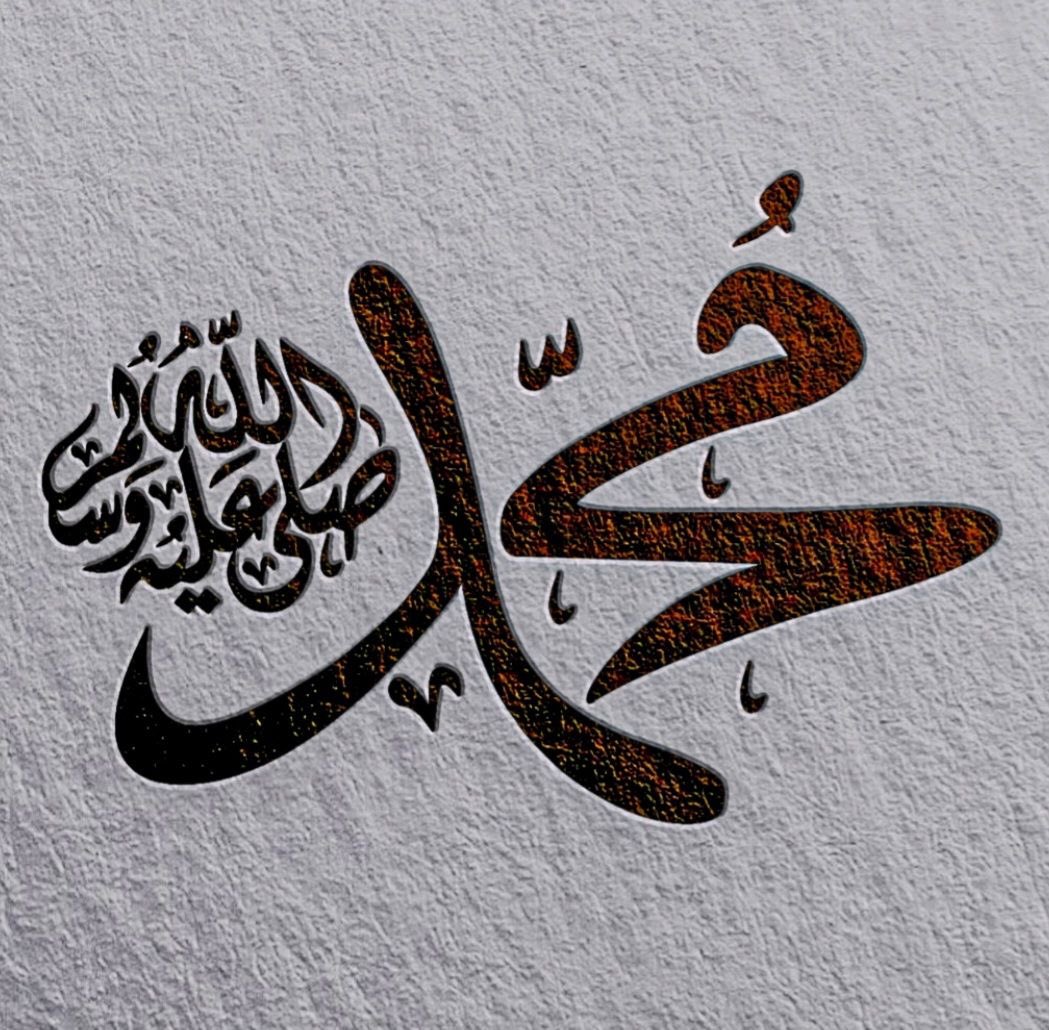 مُحَمَّد
صلى اللّٰهُ عَليْه وَسلم